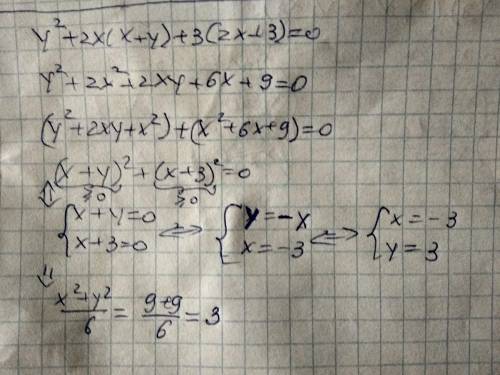 y² + 2x(x+y) + 3(2x+3) = 0
y² + 2x² + 2xy + 6x + 9 = 0
(y² + 2xy + x²) + (x² + 6x + 9) = 0
(x+y)² + (x+3)² = 0
≥0 ≥0
⇕ { x+y=0 x+3=0 ⇔ { y=-x x=-3 ⇔ { x=-3 y=3
⇓
(x²+y²)/6 = (9+9)/6 = 3